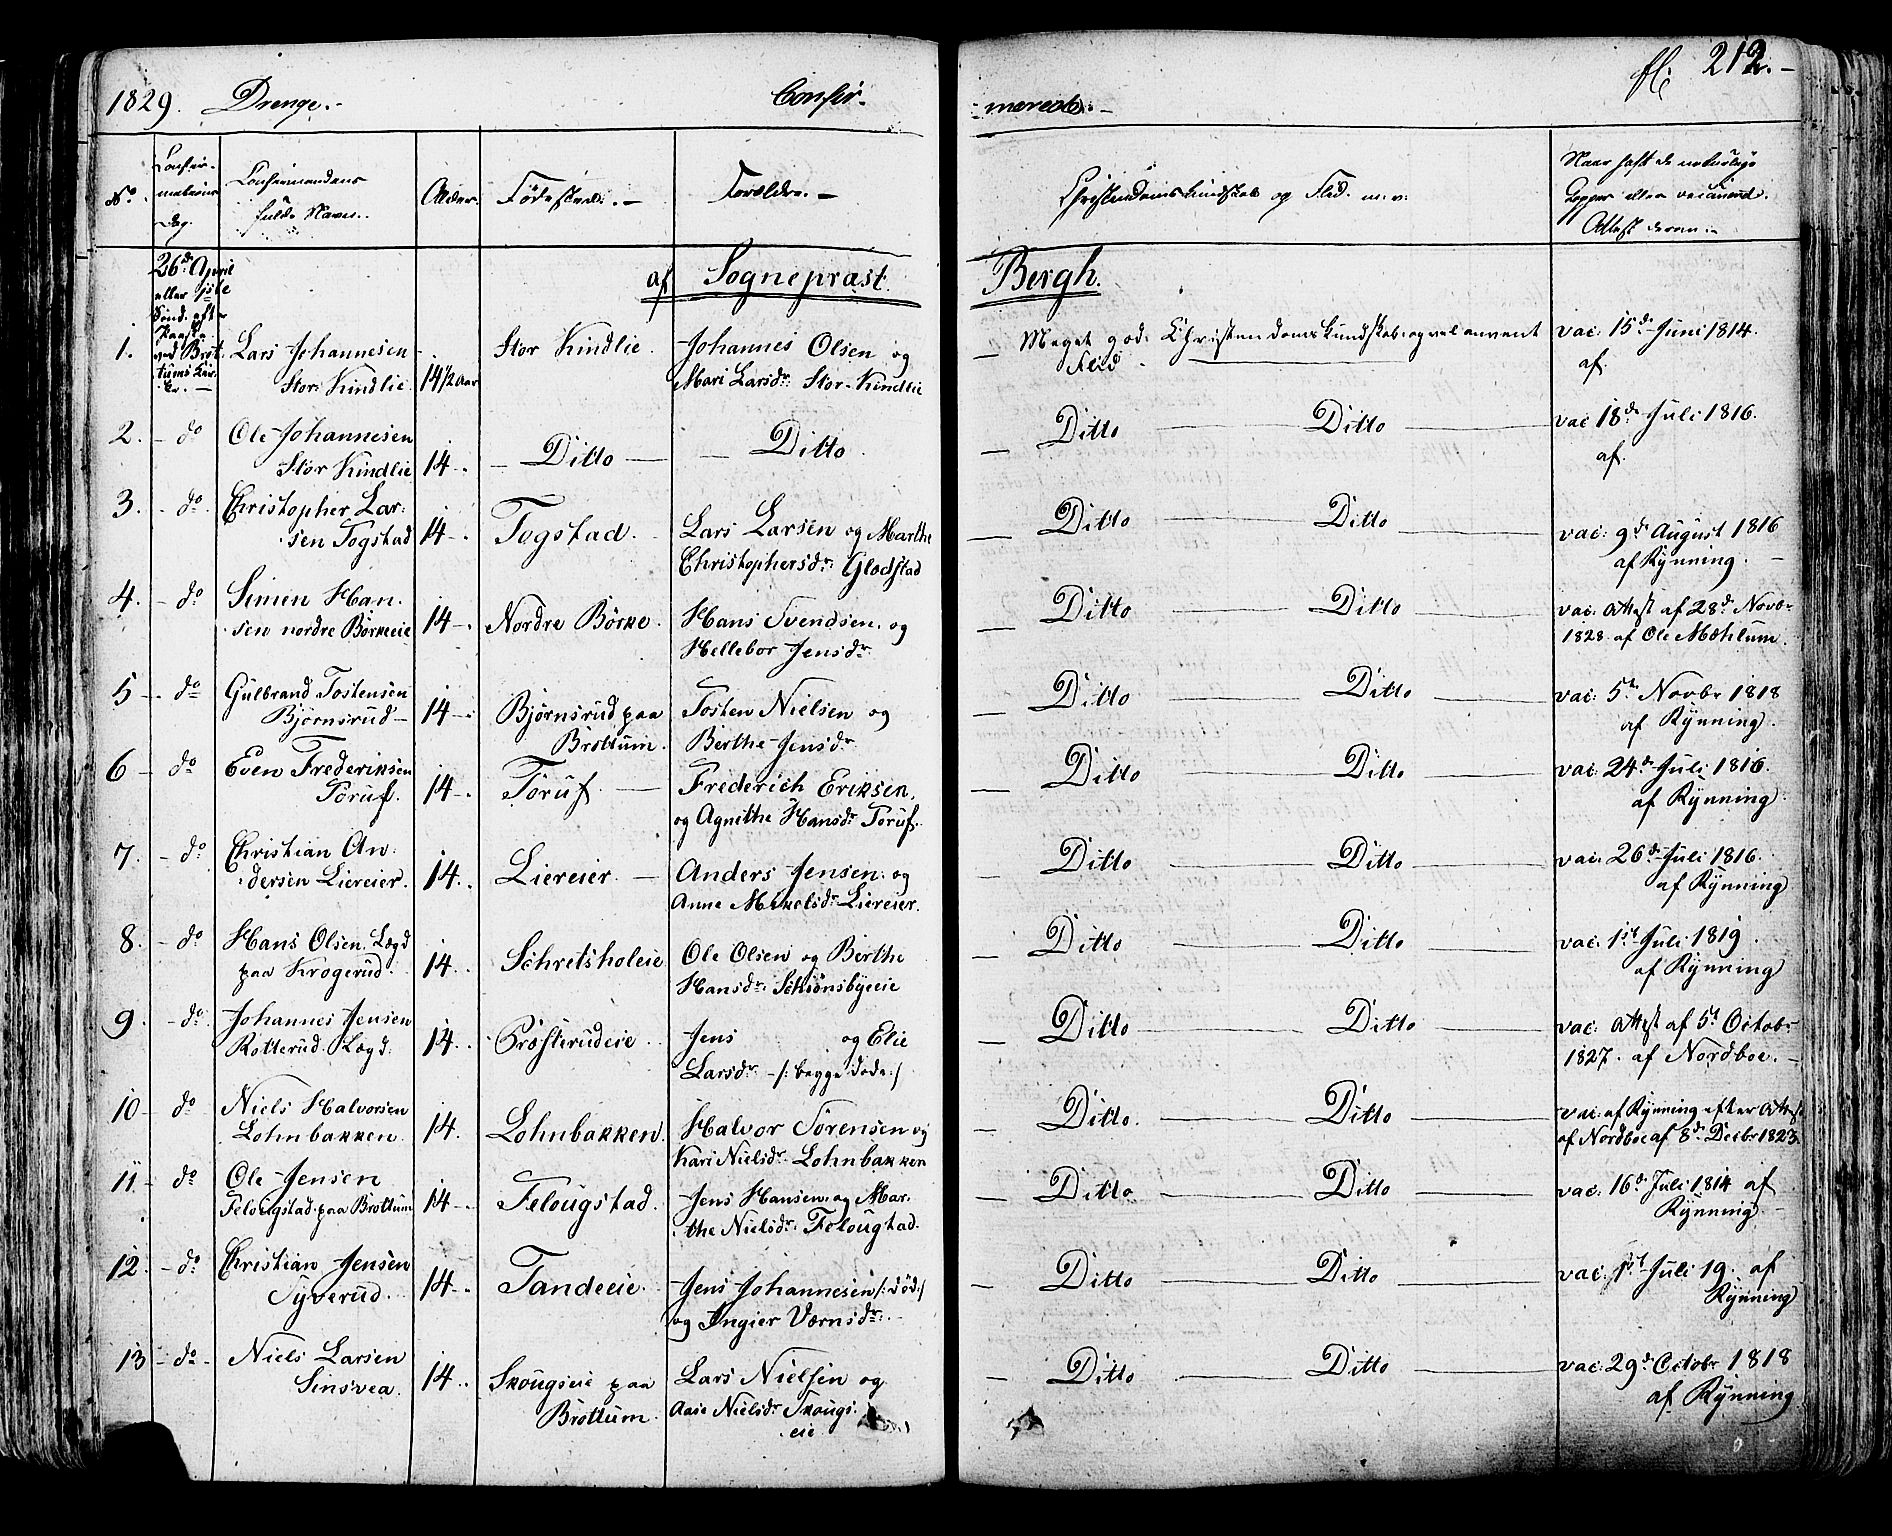 1829. Drenge.- Confir-
merede.- fl: 212.-
No. Confir-
mations
Dag. Confirmandens
fulde Navn. Alder. Fødested.- Forældre.- Christendomskundskab og Flid. m: v: Naar havt de naturlige
Kopper eller vaccinered.
Attest derom:-
26de April
eller 1ste
Sønd. efter
Paaske
ved Brøt-
tums Kir-
ke.-
af Sognepræst Bergh.
1. Lars Johannesen
Stor Kindlie 14 1/2 Aar Stor Kindlie. Johannes Olsen og
Mari Larsdr. Stor-Kindlie Meget god Christendomskundskab og vel anvent
Flid. vac: 15de Juni 1814.
af.
2. - do Ole Johannesen
Stor Kindlie 14 - Ditto - Ditto Ditto Ditto vac 18de Juli 1816.
af.
3. - do Christopher Lar-
sen Togstad 14 Togstad. Lars Larsen og Marthe
Christophersdr: Gladstad Ditto Ditto vac: 9de August 1816
af Rynning.
4. - do Simen Han-
sen nordre Børkeeie 14 Nordre Børke. Hans Svendsen. og
Hellebor Jensdr. Ditto Ditto vac: Attest af 28de Novbr
1828. af Ole Mæhlum.
5 - do Gulbrand Tostensen
Bjørnsrud 14 Bjørnsrud paa
Brøttum. Tosten Nielsen og
Berthe Jensdr. Ditto Ditto vac: 5te Novbr 1818
af Rynning.
6 - do Even Frederiksen
Toruf. 14 Toruf. Frederich Eriksen,
og Agnithe Hansdr. Toruf. Ditto Ditto vac: 24de Juli 1816.
af Rynning.
7. - do Christian An-
dersen Liereier. 14 Liereier. Anders Jensen og
Anne Mikelsdr. Liereier. Ditto Ditto vac: 26de Juli 1816.
af Rynning
8. - do Hans Olsen Lægd
paa Krogerud. 14 Schretsholeie Ole Olsen og Berthe
Hansdr: Schiønsbyeeie Ditto Ditto vac: 1st Juli 1819.
af Rynning
9. - do Johannes Jensen
Rotterud. Lægd. 14. Prøsterudeie. Jens og Elie
Larsdr. -/: begge døde:/ Ditto Ditto vac: Attest af 5t Octobr
1827. af Nordboe.-
10 - do Niels Halvorsen
Lohnbakken 14. Lohnbakken. Halvor Sørensen og
Kari Nielsdr. Lohnbakken Ditto. Ditto vac: af Rynning efter Attest
af Nordboe af 8de Decbr 1823.
11. - do Ole Jensen
Felougstad. paa Brøttum 14 Felougstad. Jens Hansen. og Mar-
the Nielsdr: Felougtad. Ditto Ditto vac: 16de Juli 1814 af
Rynning
12. - do Christian Jensen
Tyverud. 14 Tandeeie. Jens Johannesen /: død:/
og Ingier Værnsdr. Ditto Ditto vac: 1st Juli 19. af
Rynning
13 - do Niels Larsen
Sinsvea. 14 Skougseie paa
Brøttum. Lars Nielsen og
Aase Nielsdr. Skougs-
eie Ditto Ditto vac: 29de Octobr 1818
af Rynning